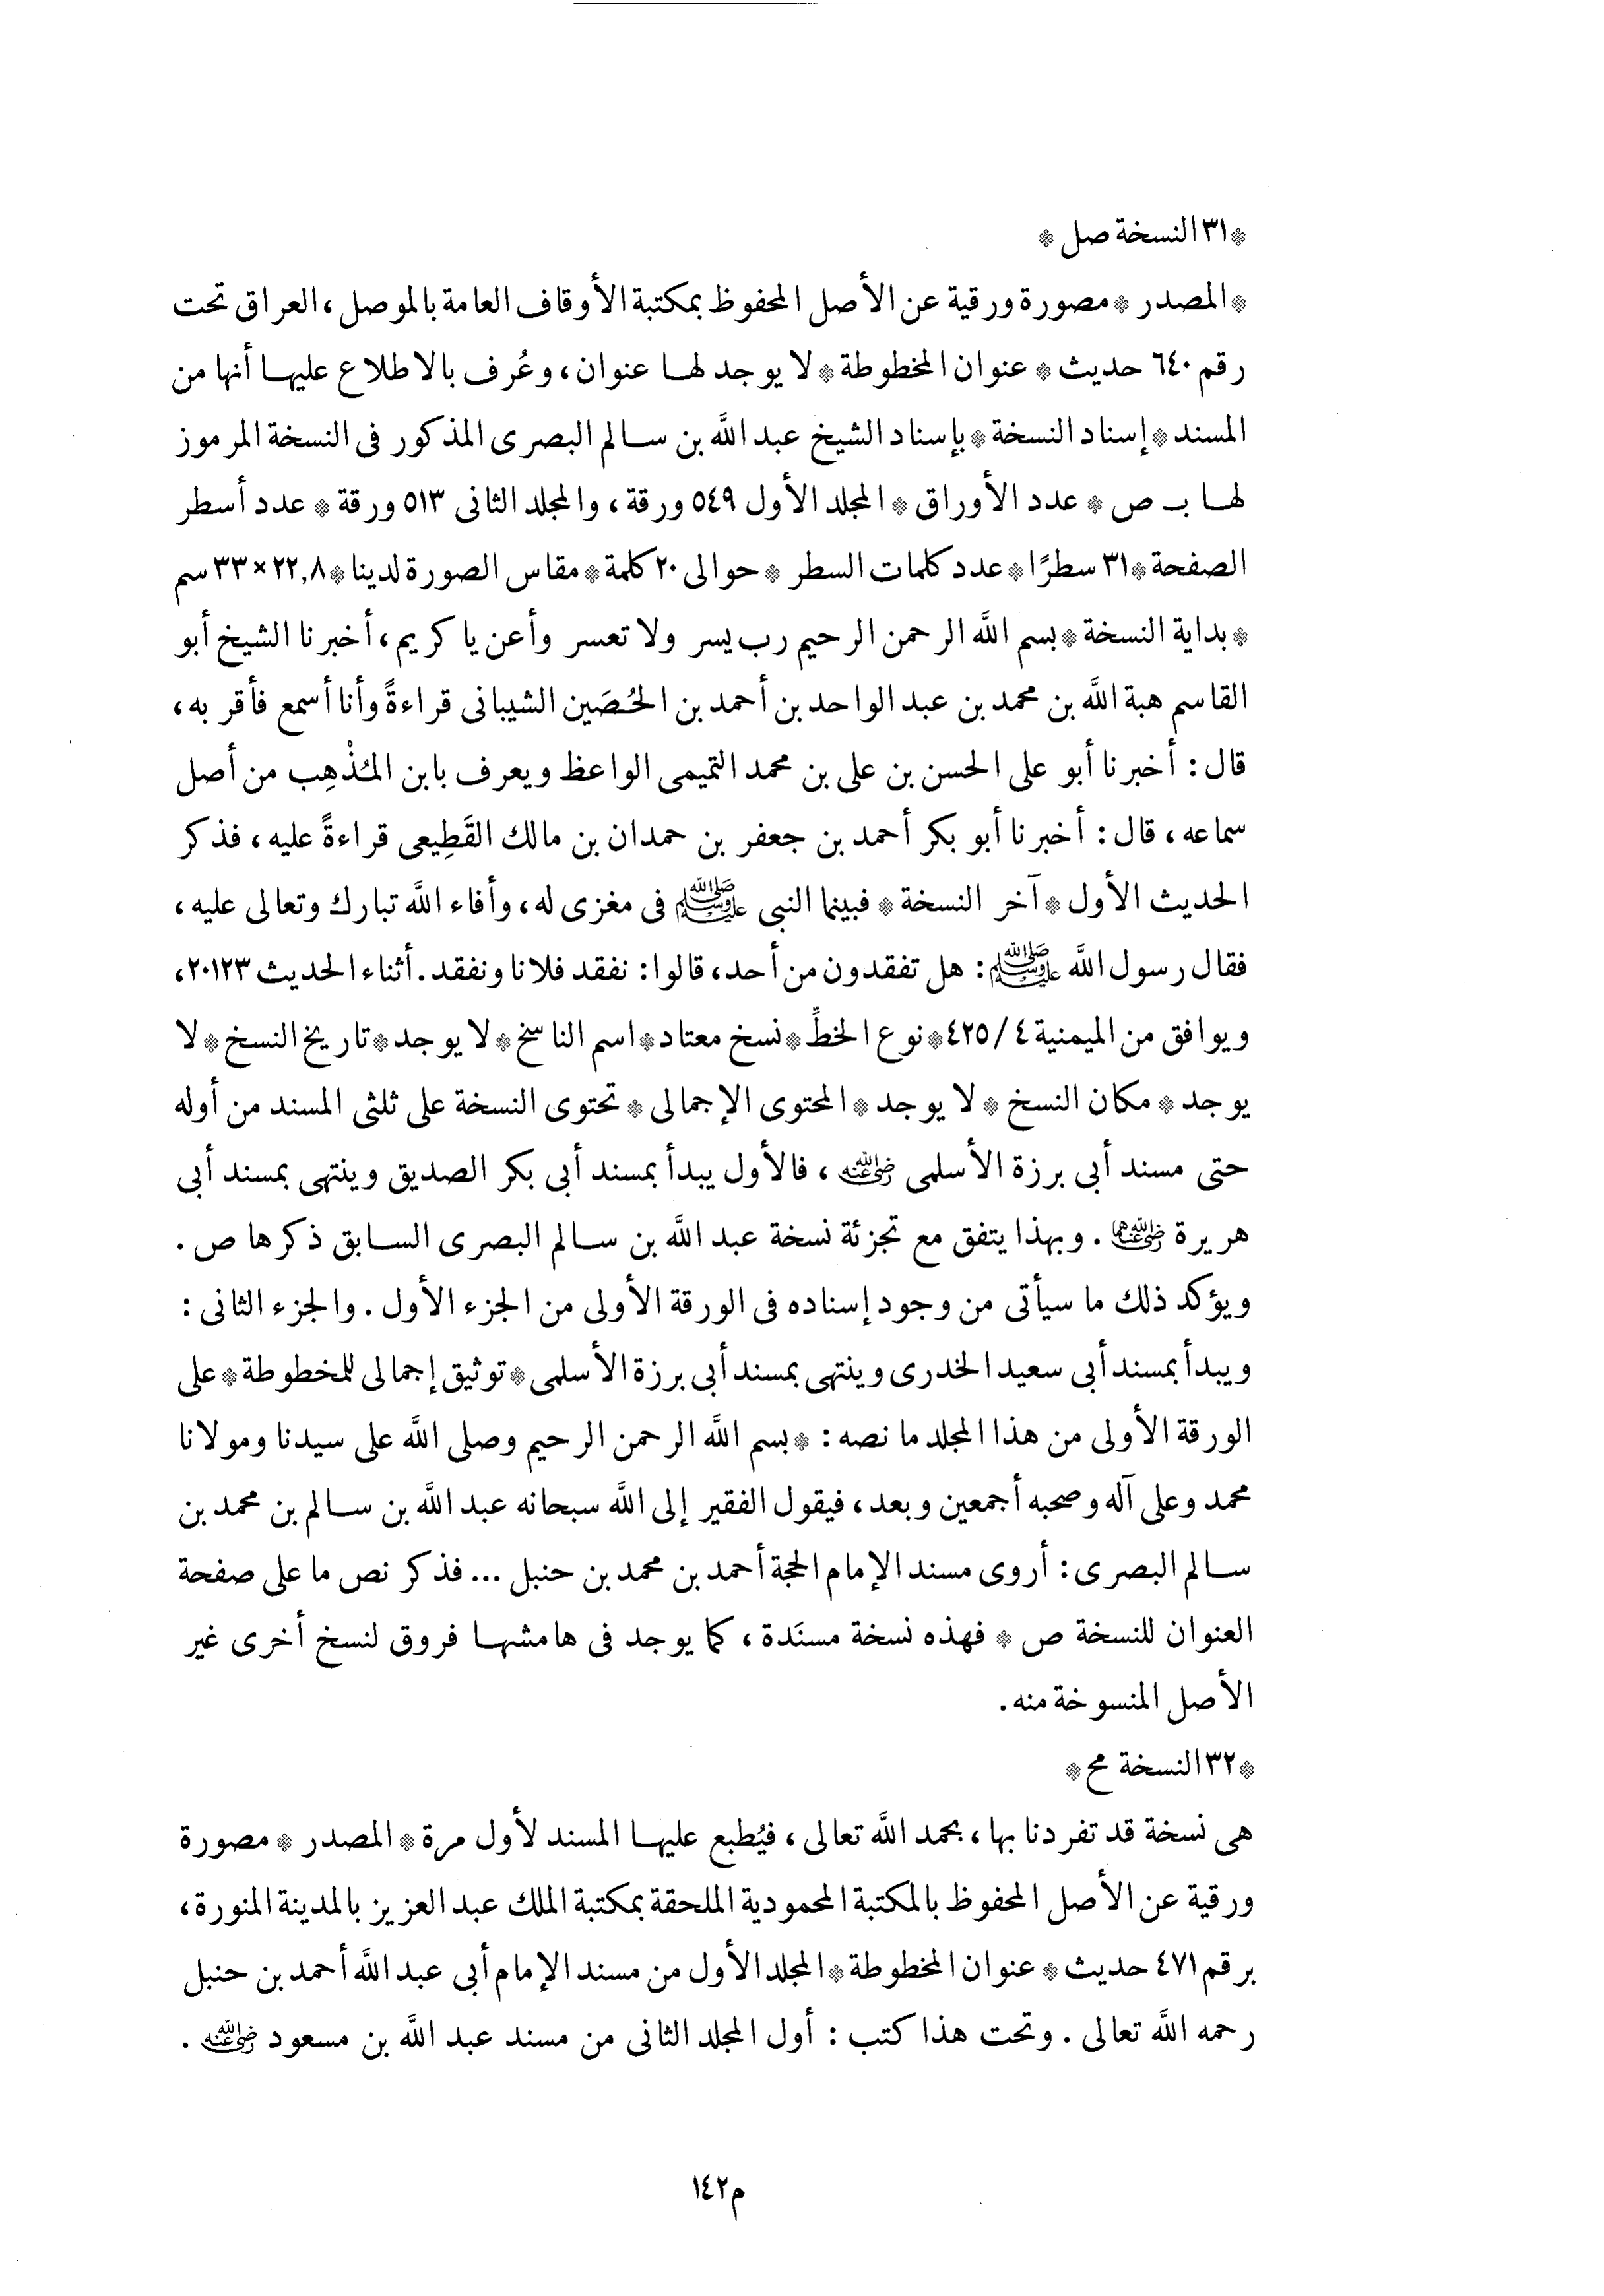 *٣١ النسخة صل *
*المصدر * مصورة ورقية عن الأصل المحفوظ بمكتبة الأوقاف العامة بالموصل، العراق تحت
رقم ٦٤٠ حديث * عنوان المخطوطة * لا يوجد لها عنوان، وعُرف بالاطلاع عليها أنها من
المسند * إسناد النسخة * بإسناد الشيخ عبد اللَّه بن سالم البصرى المذكور فى النسخة المرموز
لها بـ ص * عدد الأوراق * المجلد الأول ٥٤٩ ورقة، والمجلد الثانى ٥١٣ ورقة * عدد أسطر
الصفحة * ٣١ سطرًا * عدد كلمات السطر * حوالى ٢٠ كلمة * مقاس الصورة لدينا * ٢٢,٨ × ٣٣ سم
* بداية النسخة * بسم اللَّه الرحمن الرحيم رب يسر ولا تعسر وأعن يا كريم، أخبرنا الشيخ أبو
القاسم هبة اللَّه بن محمد بن عبد الواحد بن أحمد بن الحُصَين الشيبانى قراءةً وأنا أسمع فأقر به،
قال : أخبرنا أبو على الحسن بن على بن محمد التميمى الواعظ ويعرف بابن المُذْهِب من أصل
سماعه، قال : أخبرنا أبو بكر أحمد بن جعفر بن حمدان بن مالك القَطِيعى قراءةً عليه، فذكر
الحديث الأول * آخر النسخة * فبينما النبى ﷺ فى مغزى له، وأفاء اللَّه تبارك وتعالى عليه،
فقال رسول اللَّه ﷺ : هل تفقدون من أحد، قالوا : نفقد فلانا ونفقد. أثناء الحديث ٢٠١٢٣،
ويوافق من الميمنية ٤/ ٤٢٥ * نوع الخطِّ * نسخ معتاد * اسم الناسخ * لا يوجد * تاريخ النسخ * لا
يوجد * مكان النسخ * لا يوجد * المحتوى الإجمالى * تحتوى النسخة على ثلثى المسند من أوله
حتى مسند أبى برزة الأسلمى رضي الله عنه، فالأول يبدأ بمسند أبى بكر الصديق وينتهى بمسند أبى
هريرة رضي الله عنهما. وبهذا يتفق مع تجزئة نسخة عبد اللَّه بن سالم البصرى السابق ذكرها ص .
ويؤكد ذلك ما سيأتى من وجود إسناده فى الورقة الأولى من الجزء الأول . والجزء الثانى :
ويبدأ بمسند أبى سعيد الخدرى وينتهى بمسند أبى برزة الأسلمى * توثيق إجمالى للمخطوطة * على
الورقة الأولى من هذا المجلد ما نصه : * بسم اللَّه الرحمن الرحيم وصلى اللَّه على سيدنا ومولانا
محمد وعلى آله وصحبه أجمعين وبعد، فيقول الفقير إلى اللَّه سبحانه عبد اللَّه بن سالم بن محمد بن
سالم البصرى : أروى مسند الإمام الحجة أحمد بن محمد بن حنبل ... فذكر نص ما على صفحة
العنوان للنسخة ص * فهذه نسخة مسنَدة، كما يوجد فى هامشها فروق لنسخ أخرى غير
الأصل المنسوخة منه .
*٣٢ النسخة مح *
هى نسخة قد تفردنا بها، بحمد اللَّه تعالى، فيُطبع عليها المسند لأول مرة * المصدر * مصورة
ورقية عن الأصل المحفوظ بالمكتبة المحمودية الملحقة بمكتبة الملك عبد العزيز بالمدينة المنورة،
برقم ٤٧١ حديث * عنوان المخطوطة * المجلد الأول من مسند الإمام أبى عبد اللَّه أحمد بن حنبل
رحمه اللَّه تعالى . وتحت هذا كتب : أول المجلد الثانى من مسند عبد اللَّه بن مسعود رضي الله عنه .
م١٤٢